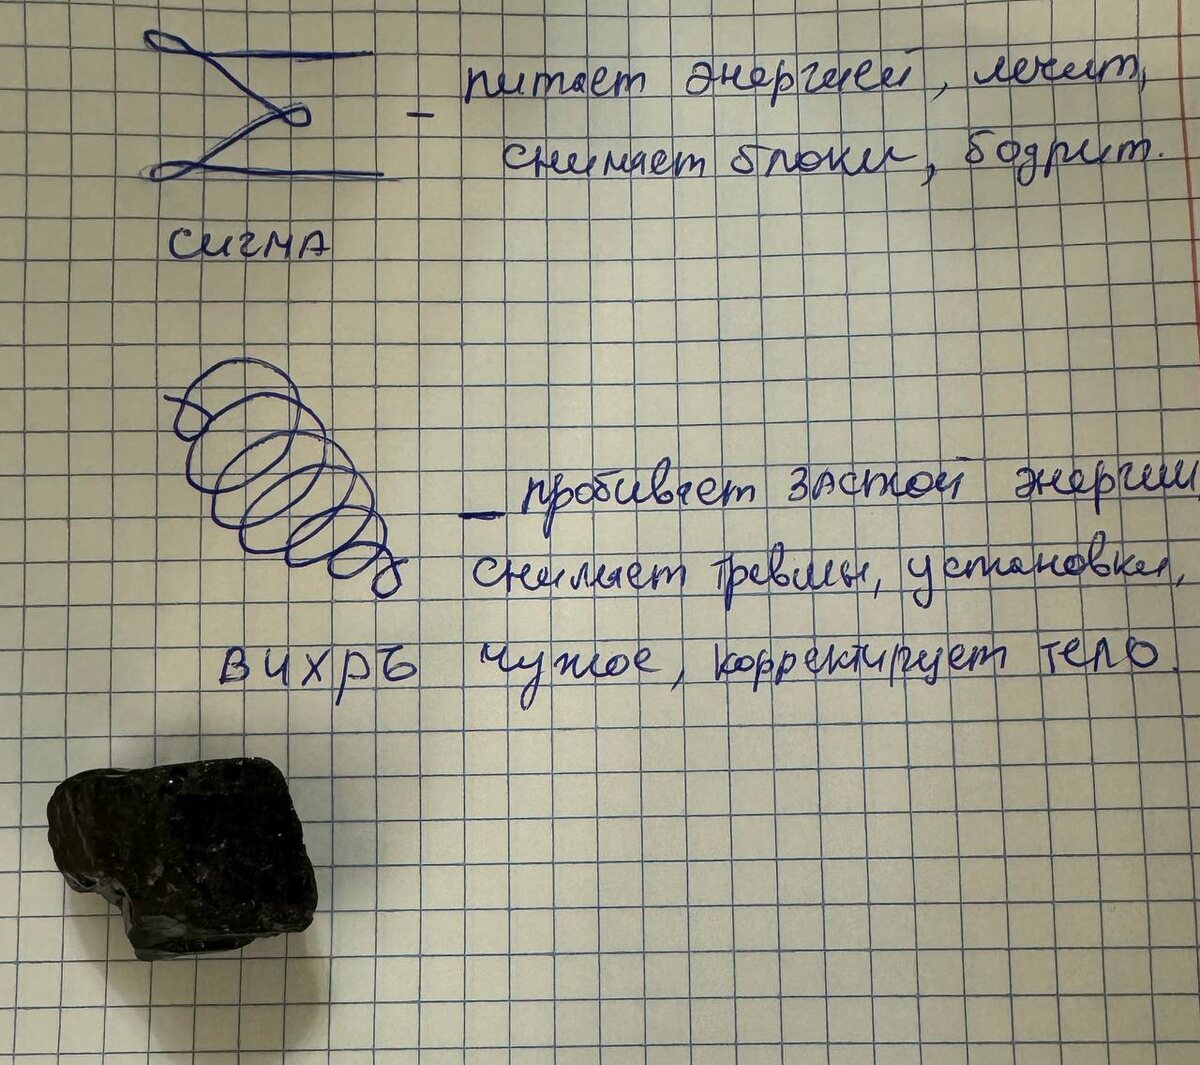 - питает энергией, лечит,
снимает блоки, бодрит.
СИГМА
- пробивает застой энергии
снимает травмы, установки,
ВИХРЬ чужое, корректирует тело.